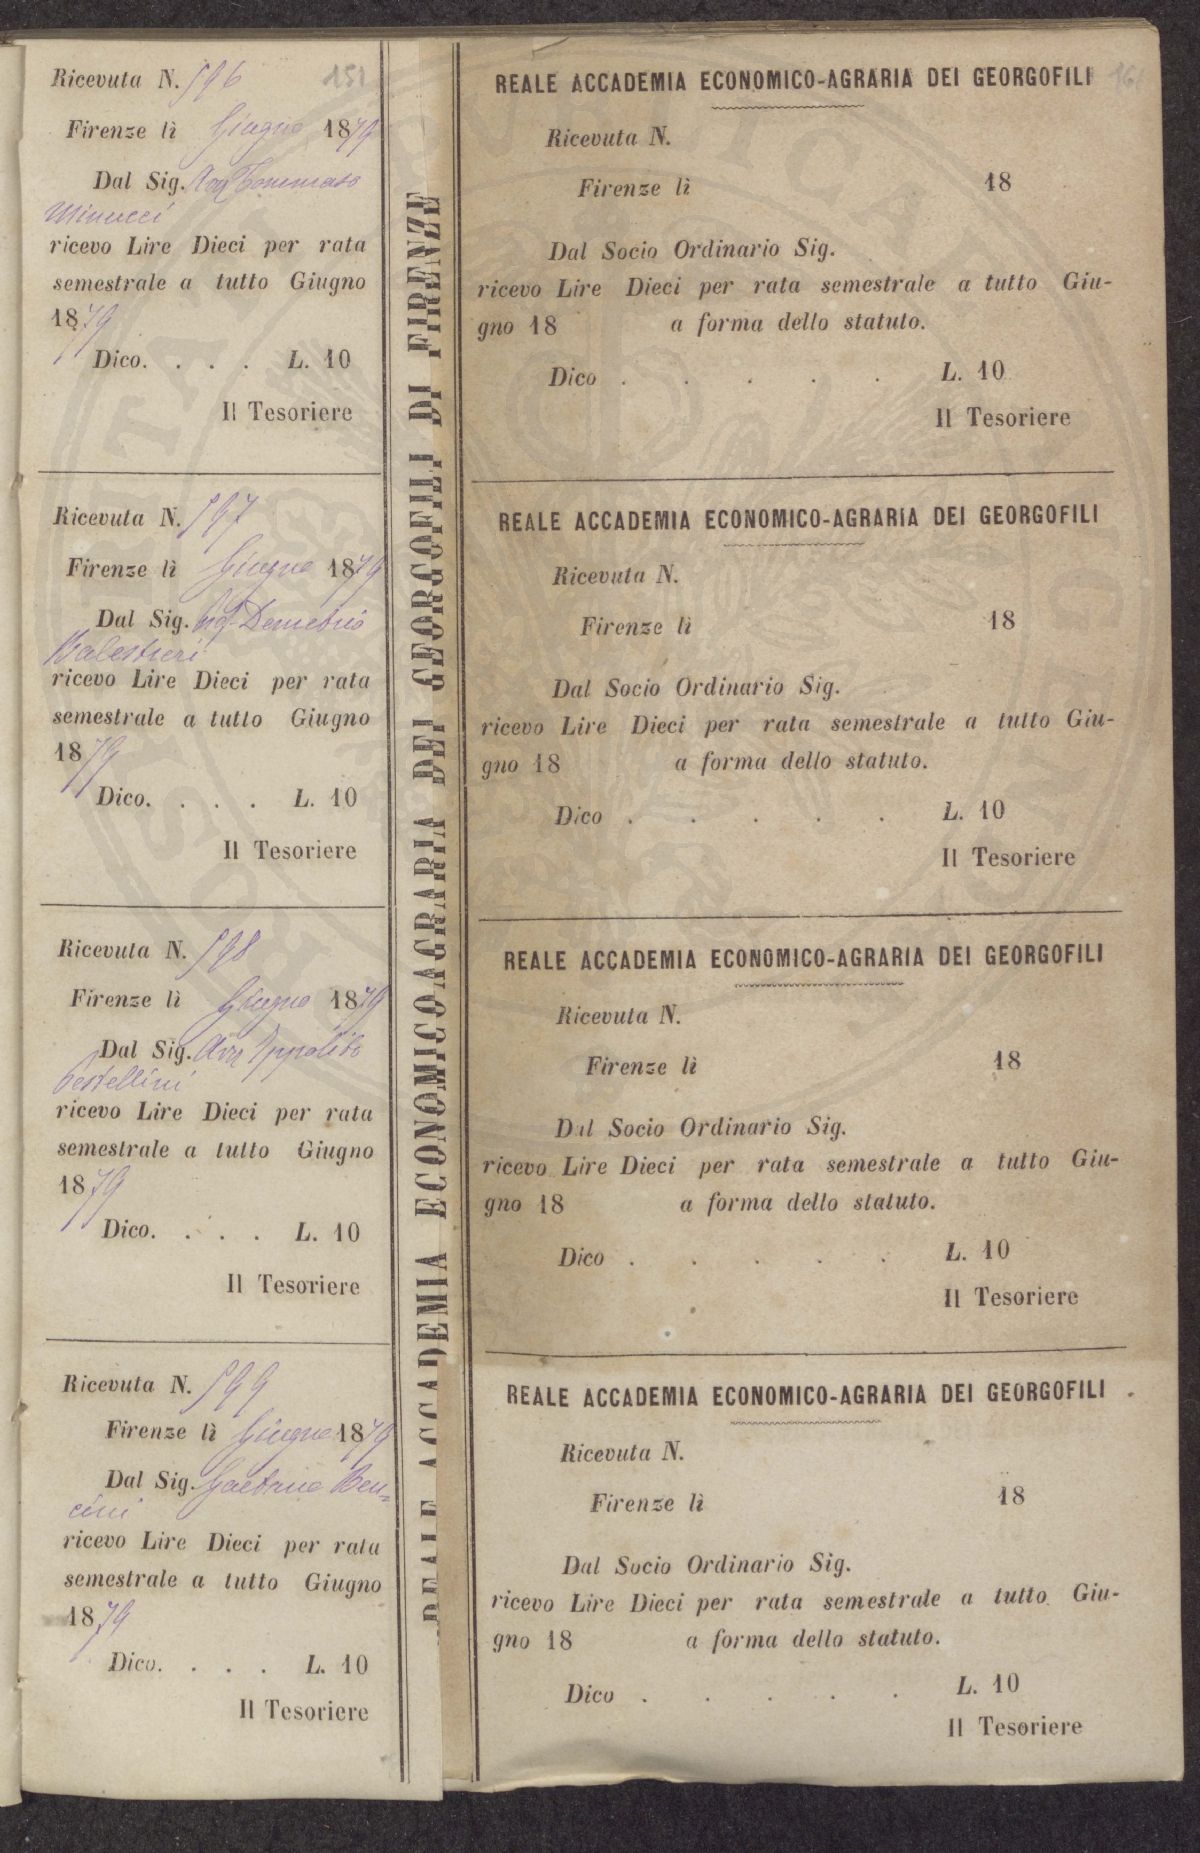 Ricevuta N. 596
151
Firenze lì Giugno 1879
Dal Sig. Avv Tommaso
Minucci
ricevo Lire Dieci per rata
semestrale a tutto Giugno
1879
Dico. . . . L. 10
Il Tesoriere
Ricevuta N. 597
Firenze lì Giugno 1879
Dal Sig. Demetrio
Balestrieri
ricevo Lire Dieci per rata
semestrale a tutto Giugno
1879
Dico. . . . L. 10
Il Tesoriere
Ricevuta N. 598
Firenze lì Giugno 1879
Dal Sig. Avv Ippolito
Pestellini
ricevo Lire Dieci per rata
semestrale a tutto Giugno
1879
Dico. . . . L. 10
Il Tesoriere
Ricevuta N. 599
Firenze lì Giugno 1879
Dal Sig. Gaetano Ben=
cini
ricevo Lire Dieci per rata
semestrale a tutto Giugno
1879
Dico. . . . L. 10
Il Tesoriere
REALE ACCADEMIA ECONOMICO AGRARIA DEI GEORGOFILI DI FIRENZE
REALE ACCADEMIA ECONOMICO-AGRARIA DEI GEORGOFILI
Ricevuta N.
Firenze lì 18
Dal Socio Ordinario Sig.
ricevo Lire Dieci per rata semestrale a tutto Giu-
gno 18 a forma dello statuto.
Dico . . . . . L. 10
Il Tesoriere
REALE ACCADEMIA ECONOMICO-AGRARIA DEI GEORGOFILI
Ricevuta N.
Firenze lì 18
Dal Socio Ordinario Sig.
ricevo Lire Dieci per rata semestrale a tutto Giu-
gno 18 a forma dello statuto.
Dico . . . . . L. 10
Il Tesoriere
REALE ACCADEMIA ECONOMICO-AGRARIA DEI GEORGOFILI
Ricevuta N.
Firenze lì 18
Dal Socio Ordinario Sig.
ricevo Lire Dieci per rata semestrale a tutto Giu-
gno 18 a forma dello statuto.
Dico . . . . . L. 10
Il Tesoriere
REALE ACCADEMIA ECONOMICO-AGRARIA DEI GEORGOFILI
Ricevuta N.
Firenze lì 18
Dal Socio Ordinario Sig.
ricevo Lire Dieci per rata semestrale a tutto Giu-
gno 18 a forma dello statuto.
Dico . . . . . L. 10
Il Tesoriere